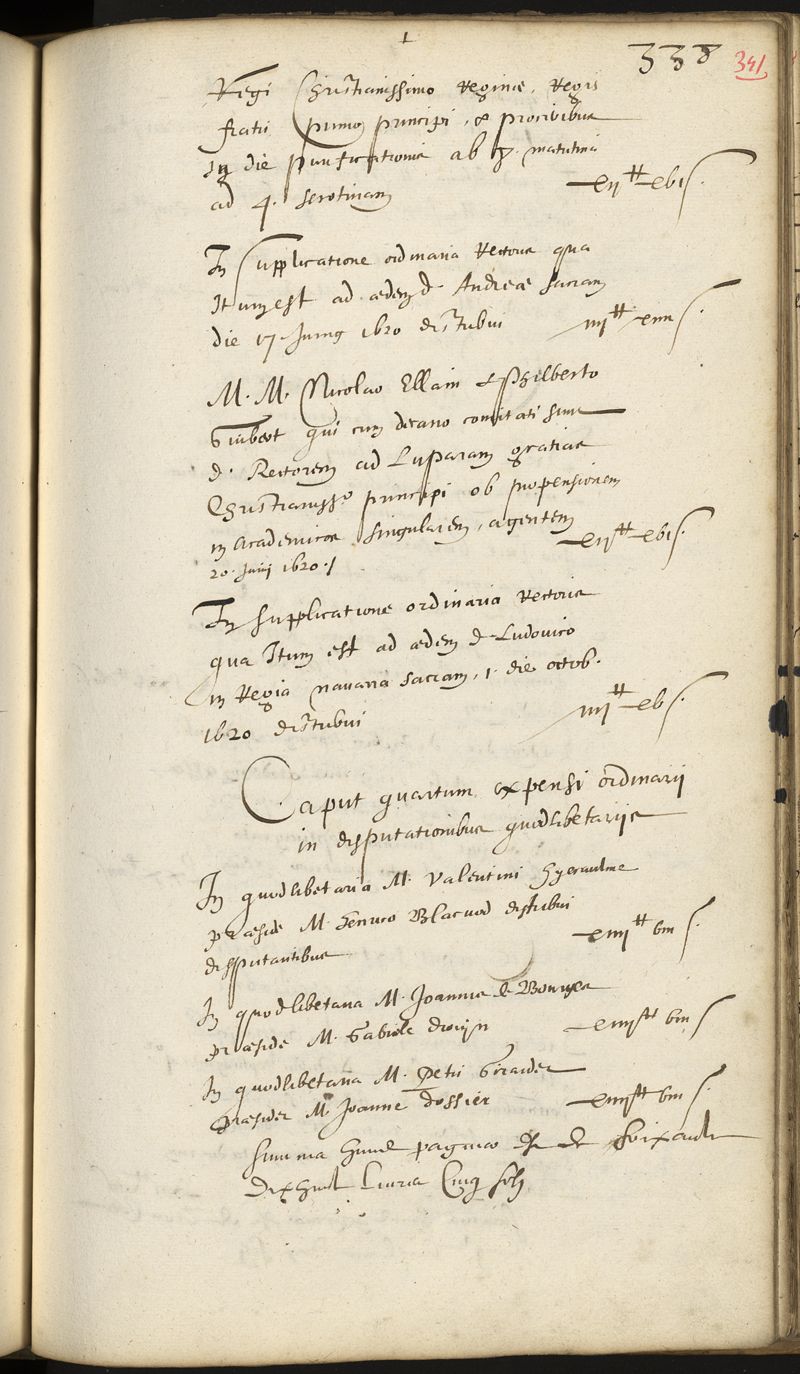 338 341
Regi Christianissimo Reginæ, Regis
fratri primo principi, & proceribus
In die purificationis ab 7. matutina
ad 4. serotinam xij ₶ xvi s.
In supplicatione ordinaria Rectoris qua
Itum est ad ædem d. Andreæ sacram
die 17. Junij 1620 distribui iiij ₶ xiiii s.
M. M. Nicolao Ellain & Philiberto
Guibert qui cum decano comitati sunt
d. Rectorem ad Luparam gratias
Christianisso principi ob propensionem
in Academicos singularem, agentem
20. Junij 1620. xij ₶ xvi s.
In supplicatione ordinaria Rectoris
qua Itum est ad ædem d. Ludovico
in Regia navarra sacram, 1. die octob.
1620 distribui iiij ₶ xv s.
Caput quartum expensi ordinarij
in disputationibus quodlibetarijs
In quodlibetaria M. Valentini Hyeraulme
præside M. Henrico Blacuod distribui
disputantibus xiiij ₶ viii s.
In quodlibetaria M. Joannis de Bourges
præside M. Gabiele xiiij ₶ viii s
In quodlibetaria M. Petri Girardet
præside M. Joanne Dossier xiiij ₶ viii s.
Summa huius paginæ est de soixante
dix huit Livres Cinq solz